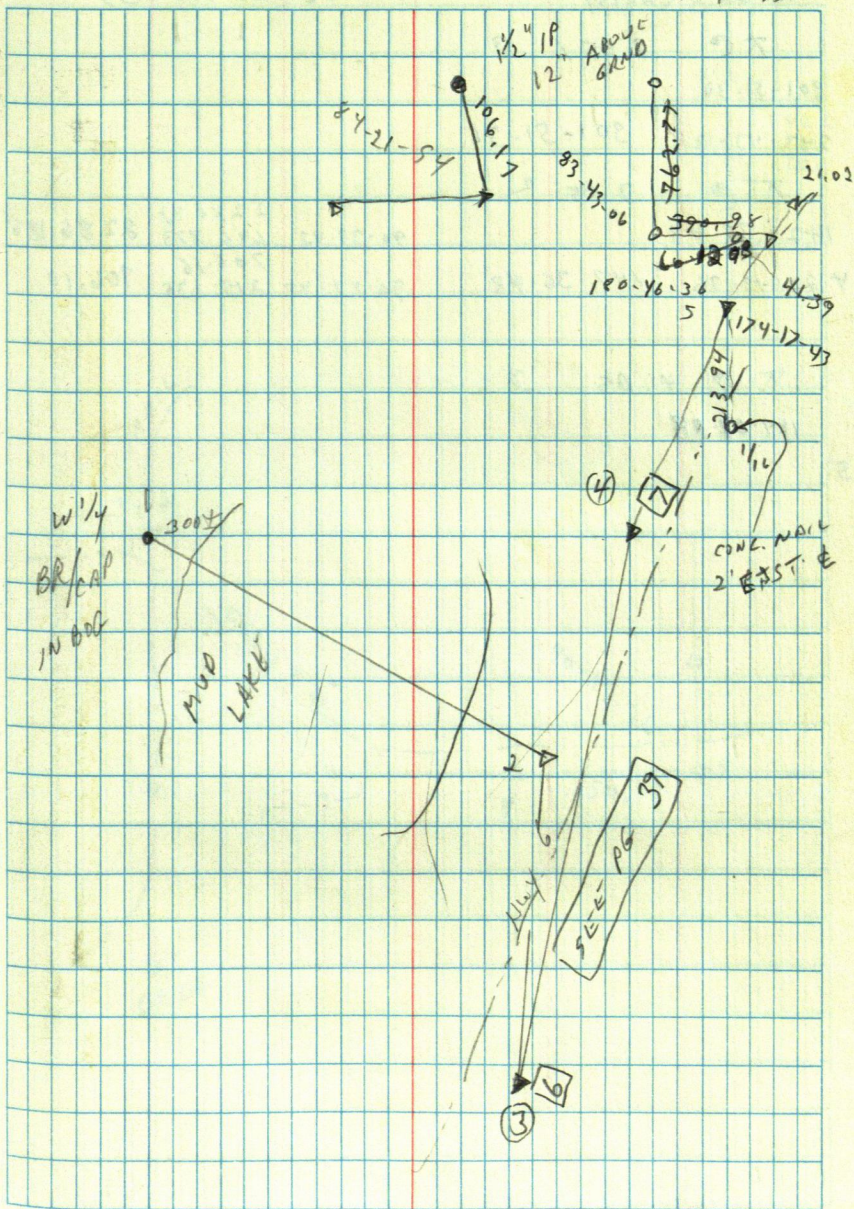 1 1/2" IP
12" ABOVE
GRND
106.17
84-21-54
762.77
83-43-06
21.02
390.98
180-46-36
41.39
5
174-17-43
213.94
1/16
④ 7
CONC. NAIL
2' EAST. ℄
1
W 1/4
BR/CAP
IN BOG
300±
MUD
LAKE
2
6
HWY
SEE PG 39
③ 6